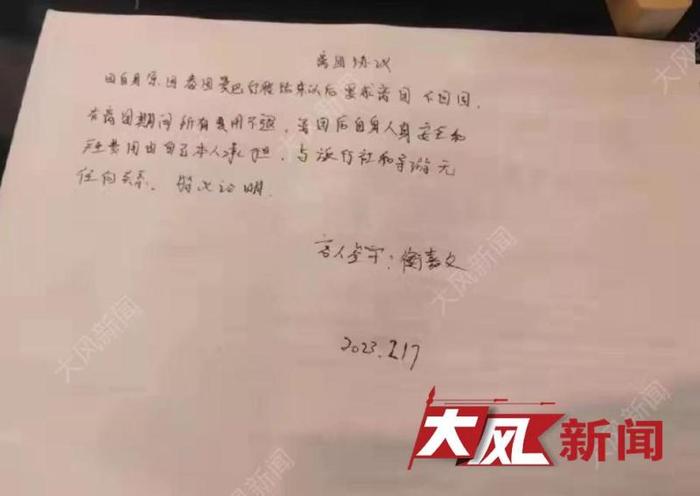 离团协议
因自身原因番团曼巴行程结束以后要求离团不回国,
在离团期间所有费用不退,离团后自身人身安全和
一切费用由自己本人承担,与旅行社和导游无
任何关系. 特此证明.
客人签字:衡嘉文
2023.2.17
大风新闻
大风新闻
大风新闻
大风新闻
大风新闻
大风新闻